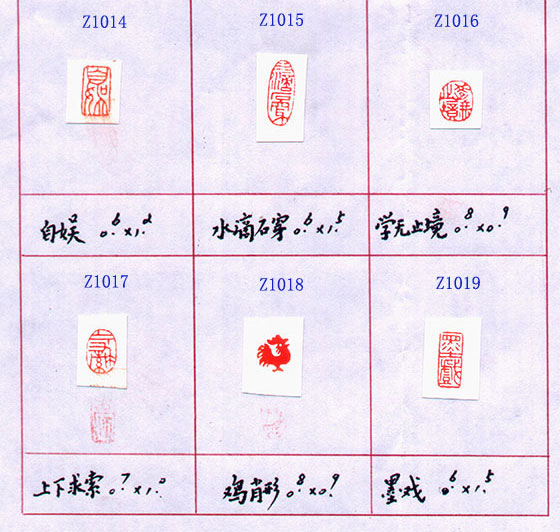 Z1014 Z1015 Z1016
自娱 0.6×1.0 水滴石穿 0.6×1.5 学无止境 0.8×0.9
Z1017 Z1018 Z1019
上下求索 0.7×1.0 鸡肖形 0.8×0.9 墨戏 0.6×1.5